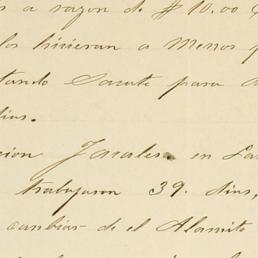 a razon de $10.00
los hicieran a menos
tando Sacate para
dias.
cion Jacales en La
trabajaron 39. dias,
cambias de el Alamito